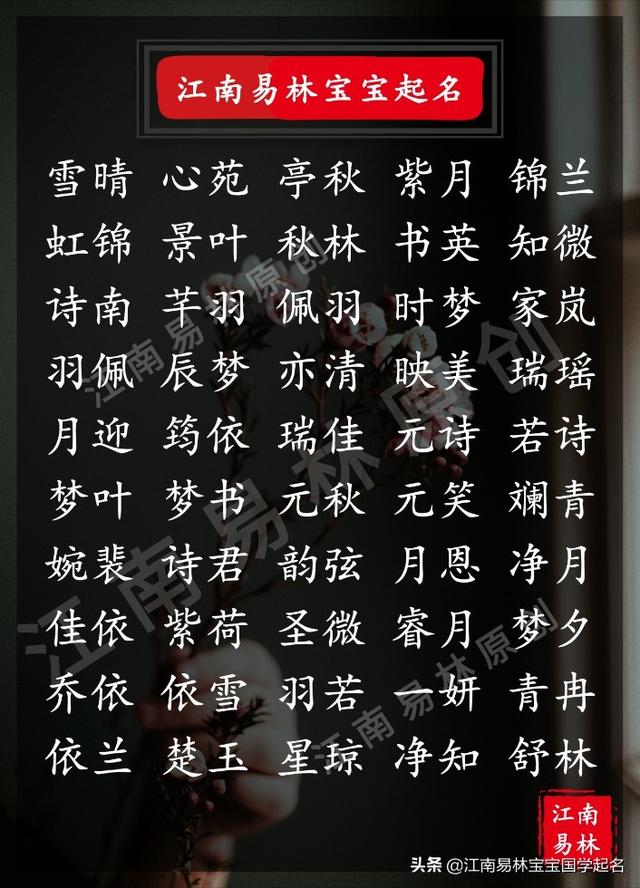 江南易林宝宝起名
雪晴 心苑 亭秋 紫月 锦兰
虹锦 景叶 秋林 书英 知微
诗南 芊羽 佩羽 时梦 家岚
羽佩 辰梦 亦清 映美 瑞瑶
月迎 筠依 瑞佳 元诗 若诗
梦叶 梦书 元秋 元笑 斓青
婉裴 诗君 韵弦 月恩 净月
佳依 紫荷 圣微 睿月 梦夕
乔依 依雪 羽若 一妍 青冉
依兰 楚玉 星琼 净知 舒林
江南易林原创
江南易林原创
江南易林原创
江南
易林
头条 @江南易林宝宝国学起名